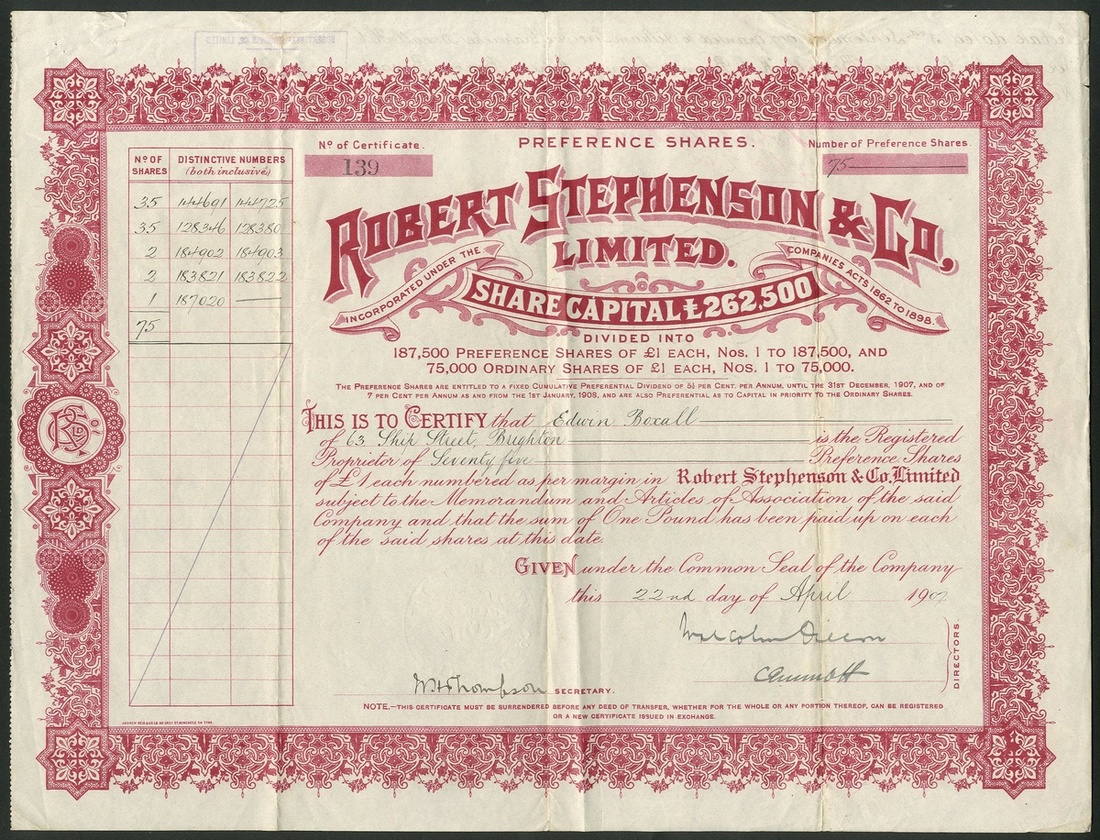 PREFERENCE SHARES.
Nº of Certificate.
139
Number of Preference Shares
75
Nº OF SHARES DISTINCTIVE NUMBERS (both inclusive)
35 144691 144725
35 128346 128380
2 184902 184903
2 183821 183822
1 187020
75
ROBERT STEPHENSON & CO,
LIMITED.
INCORPORATED UNDER THE COMPANIES ACTS 1862 TO 1898.
SHARE CAPITAL £262,500
DIVIDED INTO
187,500 PREFERENCE SHARES OF £1 EACH, NOS. 1 TO 187,500, AND
75,000 ORDINARY SHARES OF £1 EACH, NOS. 1 TO 75,000.
THE PREFERENCE SHARES ARE ENTITLED TO A FIXED CUMULATIVE PREFERENTIAL DIVIDEND OF 5½ PER CENT. PER ANNUM, UNTIL THE 31ST DECEMBER, 1907, AND OF
7 PER CENT PER ANNUM AS AND FROM THE 1ST JANUARY, 1908, AND ARE ALSO PREFERENTIAL AS TO CAPITAL IN PRIORITY TO THE ORDINARY SHARES.
THIS IS TO CERTIFY that Edwin Boxall
of 63 Ship Street, Brighton is the Registered
Proprietor of Seventy five Preference Shares
of £1 each numbered as per margin in Robert Stephenson & Co, Limited
subject to the Memorandum and Articles of Association of the said
Company and that the sum of One Pound has been paid up on each
of the said shares at this date.
GIVEN under the Common Seal of the Company
this 22nd day of April 1902
Malcolm Dillon
DIRECTORS.
W H Thompson SECRETARY.
NOTE.—THIS CERTIFICATE MUST BE SURRENDERED BEFORE ANY DEED OF TRANSFER, WHETHER FOR THE WHOLE OR ANY PORTION THEREOF, CAN BE REGISTERED
OR A NEW CERTIFICATE ISSUED IN EXCHANGE.